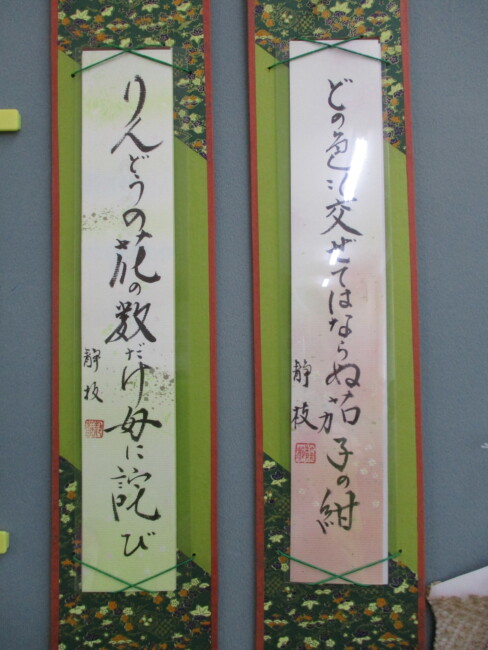 どの色も交ぜてはならぬ茄子の紺
静枝
りんどうの花の数だけ母に詫び
静枝